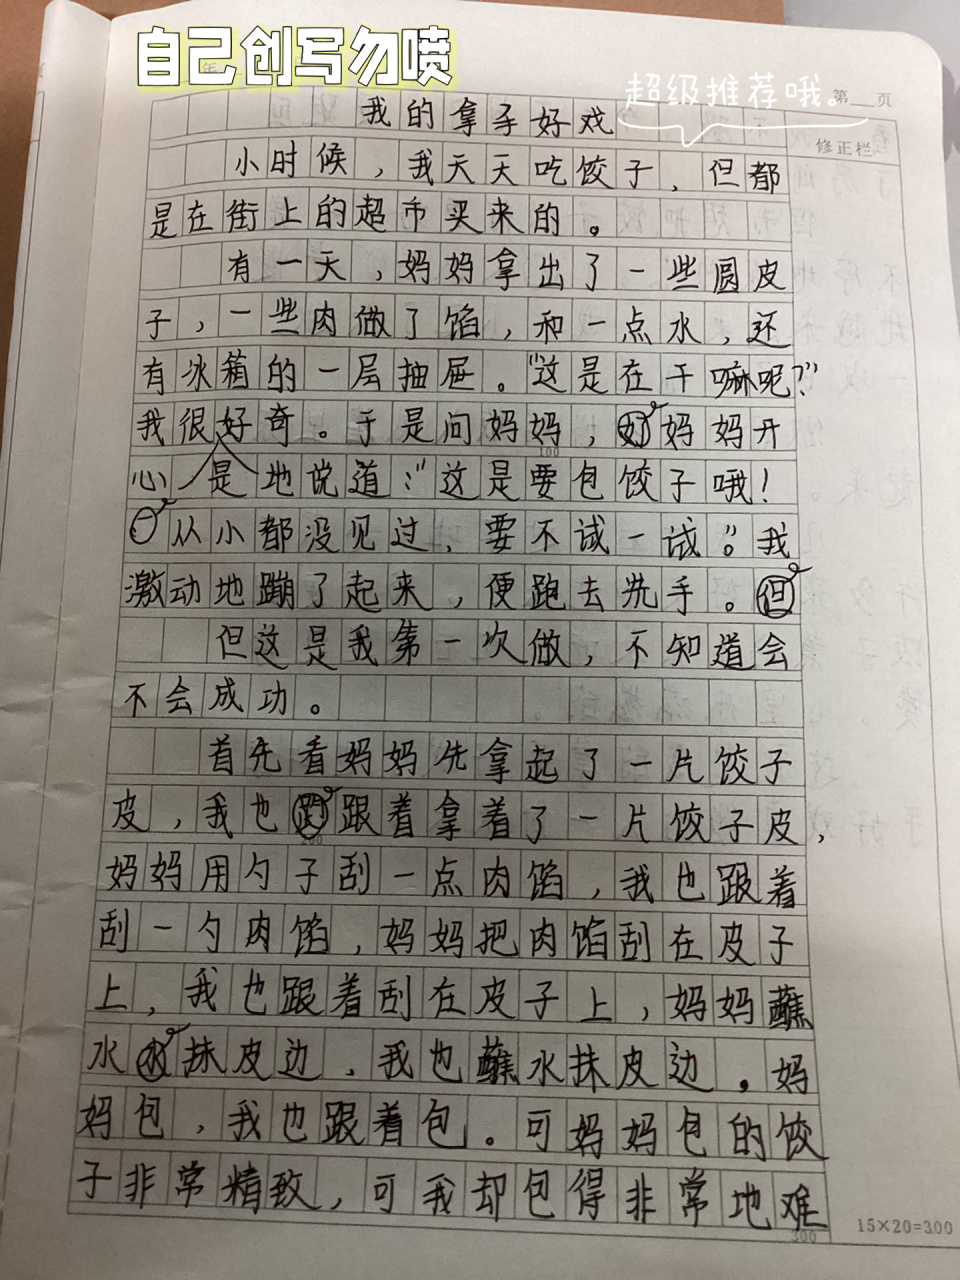 自己创写勿喷
超级推荐哦。
年
第 页
修正栏
我的拿手好戏
小时候，我天天吃饺子，但都
是在街上的超市买来的。
有一天，妈妈拿出了一些圆皮
子，一些肉做了馅，和一点水，还
有冰箱的一层抽屉。“这是在干嘛呢？”
我很好奇。于是问妈妈，妈妈开
心是地说道：“这是要包饺子哦！
从小都没见过，要不试一试”。我
激动地蹦了起来，便跑去洗手。
但这是我第一次做，不知道会
不会成功。
首先看妈妈先拿起了一片饺子
皮，我也跟着拿着了一片饺子皮，
妈妈用勺子刮一点肉馅，我也跟着
刮一勺肉馅，妈妈把肉馅刮在皮子
上，我也跟着刮在皮子上，妈妈蘸
水抹皮边，我也蘸水抹皮边，妈
妈包，我也跟着包。可妈妈包的饺
子非常精致，可我却包得非常地难
100
200
300
15×20=300